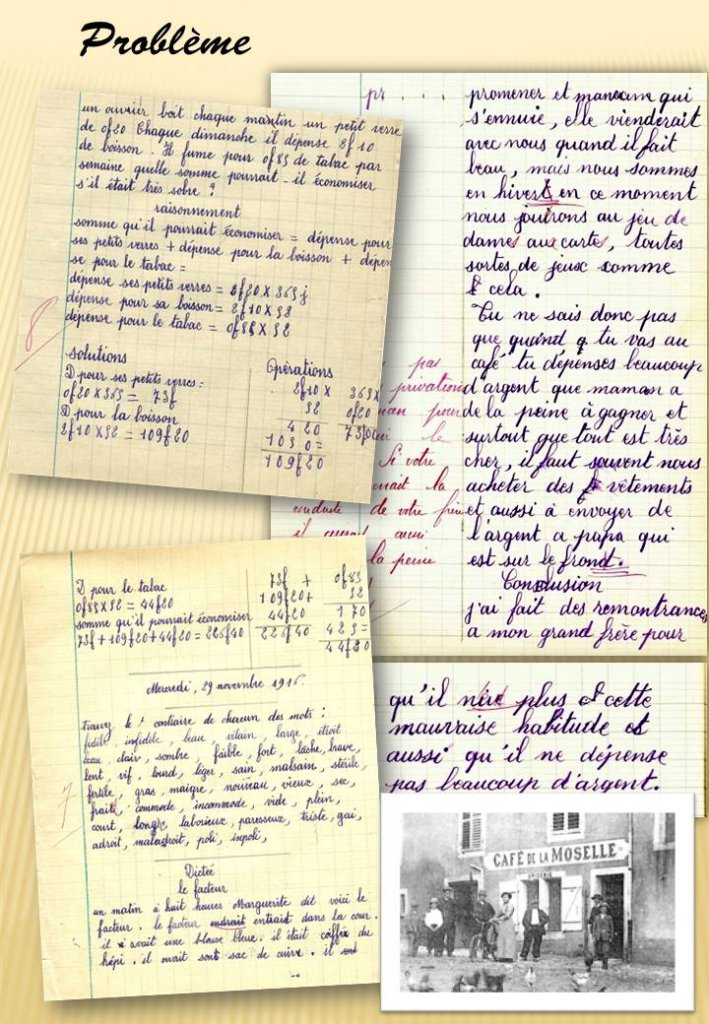 Problème
un ouvrier boit chaque mantin un petit verre
de 0f20 Chaque dimanche il dépense 2f10
de boisson. Il fume pour 0f85 de tabac par
semaine quelle somme pourrait-il économiser
s'il était très sobre ?
raisonnement
somme qu'il pourrait économiser = dépense pour
ses petits verres + dépense pour la boisson + dépen
se pour le tabac =
dépense ses petits verres = 0f20 X 365 j
dépense pour sa boisson = 2f10 X 52
dépense pour le tabac = 0f85 X 52
8
solutions
D pour ses petits verres =
0f20 X 365 = 73f
D pour la boisson
2f10 X 52 = 109f20
Opérations
2f10 X
52
420
1050=
109f20
365 X
0f20
D pour le tabac
0f85 X 52 = 44f20
somme qu'il pourrait économiser
73f + 109f20 + 44f20 = 226f40
73f +
109f20+
44f20
226f40
0f85
52
170
425=
44f20
Mercredi, 29 novembre 1916.
trouvez le contraire de chacun des mots :
fidèle, infidèle, beau, vilain, large, étroit
eau, clair, sombre, faible, fort, lâche, brave,
lent, vif, lourd, léger, sain, malsain, stérile,
fertile, gras, maigre, nouveau, vieux, sec,
commode, incommode, vide, plein,
court, longs, laborieux, paresseux, triste, gai,
adroit, maladroit, poli, impoli,
7
Dictée
le facteur
un matin à huit heures Marguerite dit voici le
facteur. le facteur entrait dans la cour.
il avait une blouse bleue. il était coiffé du
képi. il ouvrit sont sac de cuire. il
pr . . . .
promener et mamam qui
s'ennuie, elle vienderait
avec nous quand il fait
beau, mais nous sommes
en hivert en ce moment
nous jouirons au jeu de
dames aux cartes, toutes
sortes de jeux comme
cela.
Tu ne sais donc pas
que quand tu vas au
café tu dépenses beaucoup
d'argent que maman a
de la peine à gagner et
surtout que tout est très
cher, il faut souvent nous
acheter des vêtements
et aussi à envoyer de
l'argent a papa qui
est sur le front.
Conclusion
j'ai fait des remontrances
a mon grand frère pour
par
privation
pour
le
Si votre
la
conduite de votre frère
aussi
la peine
qu'il plus cette
mauvaise habitude et
aussi qu'il ne dépense
pas beaucoup d'argent.
CAFÉ DE LA MOSELLE
EPICERIE